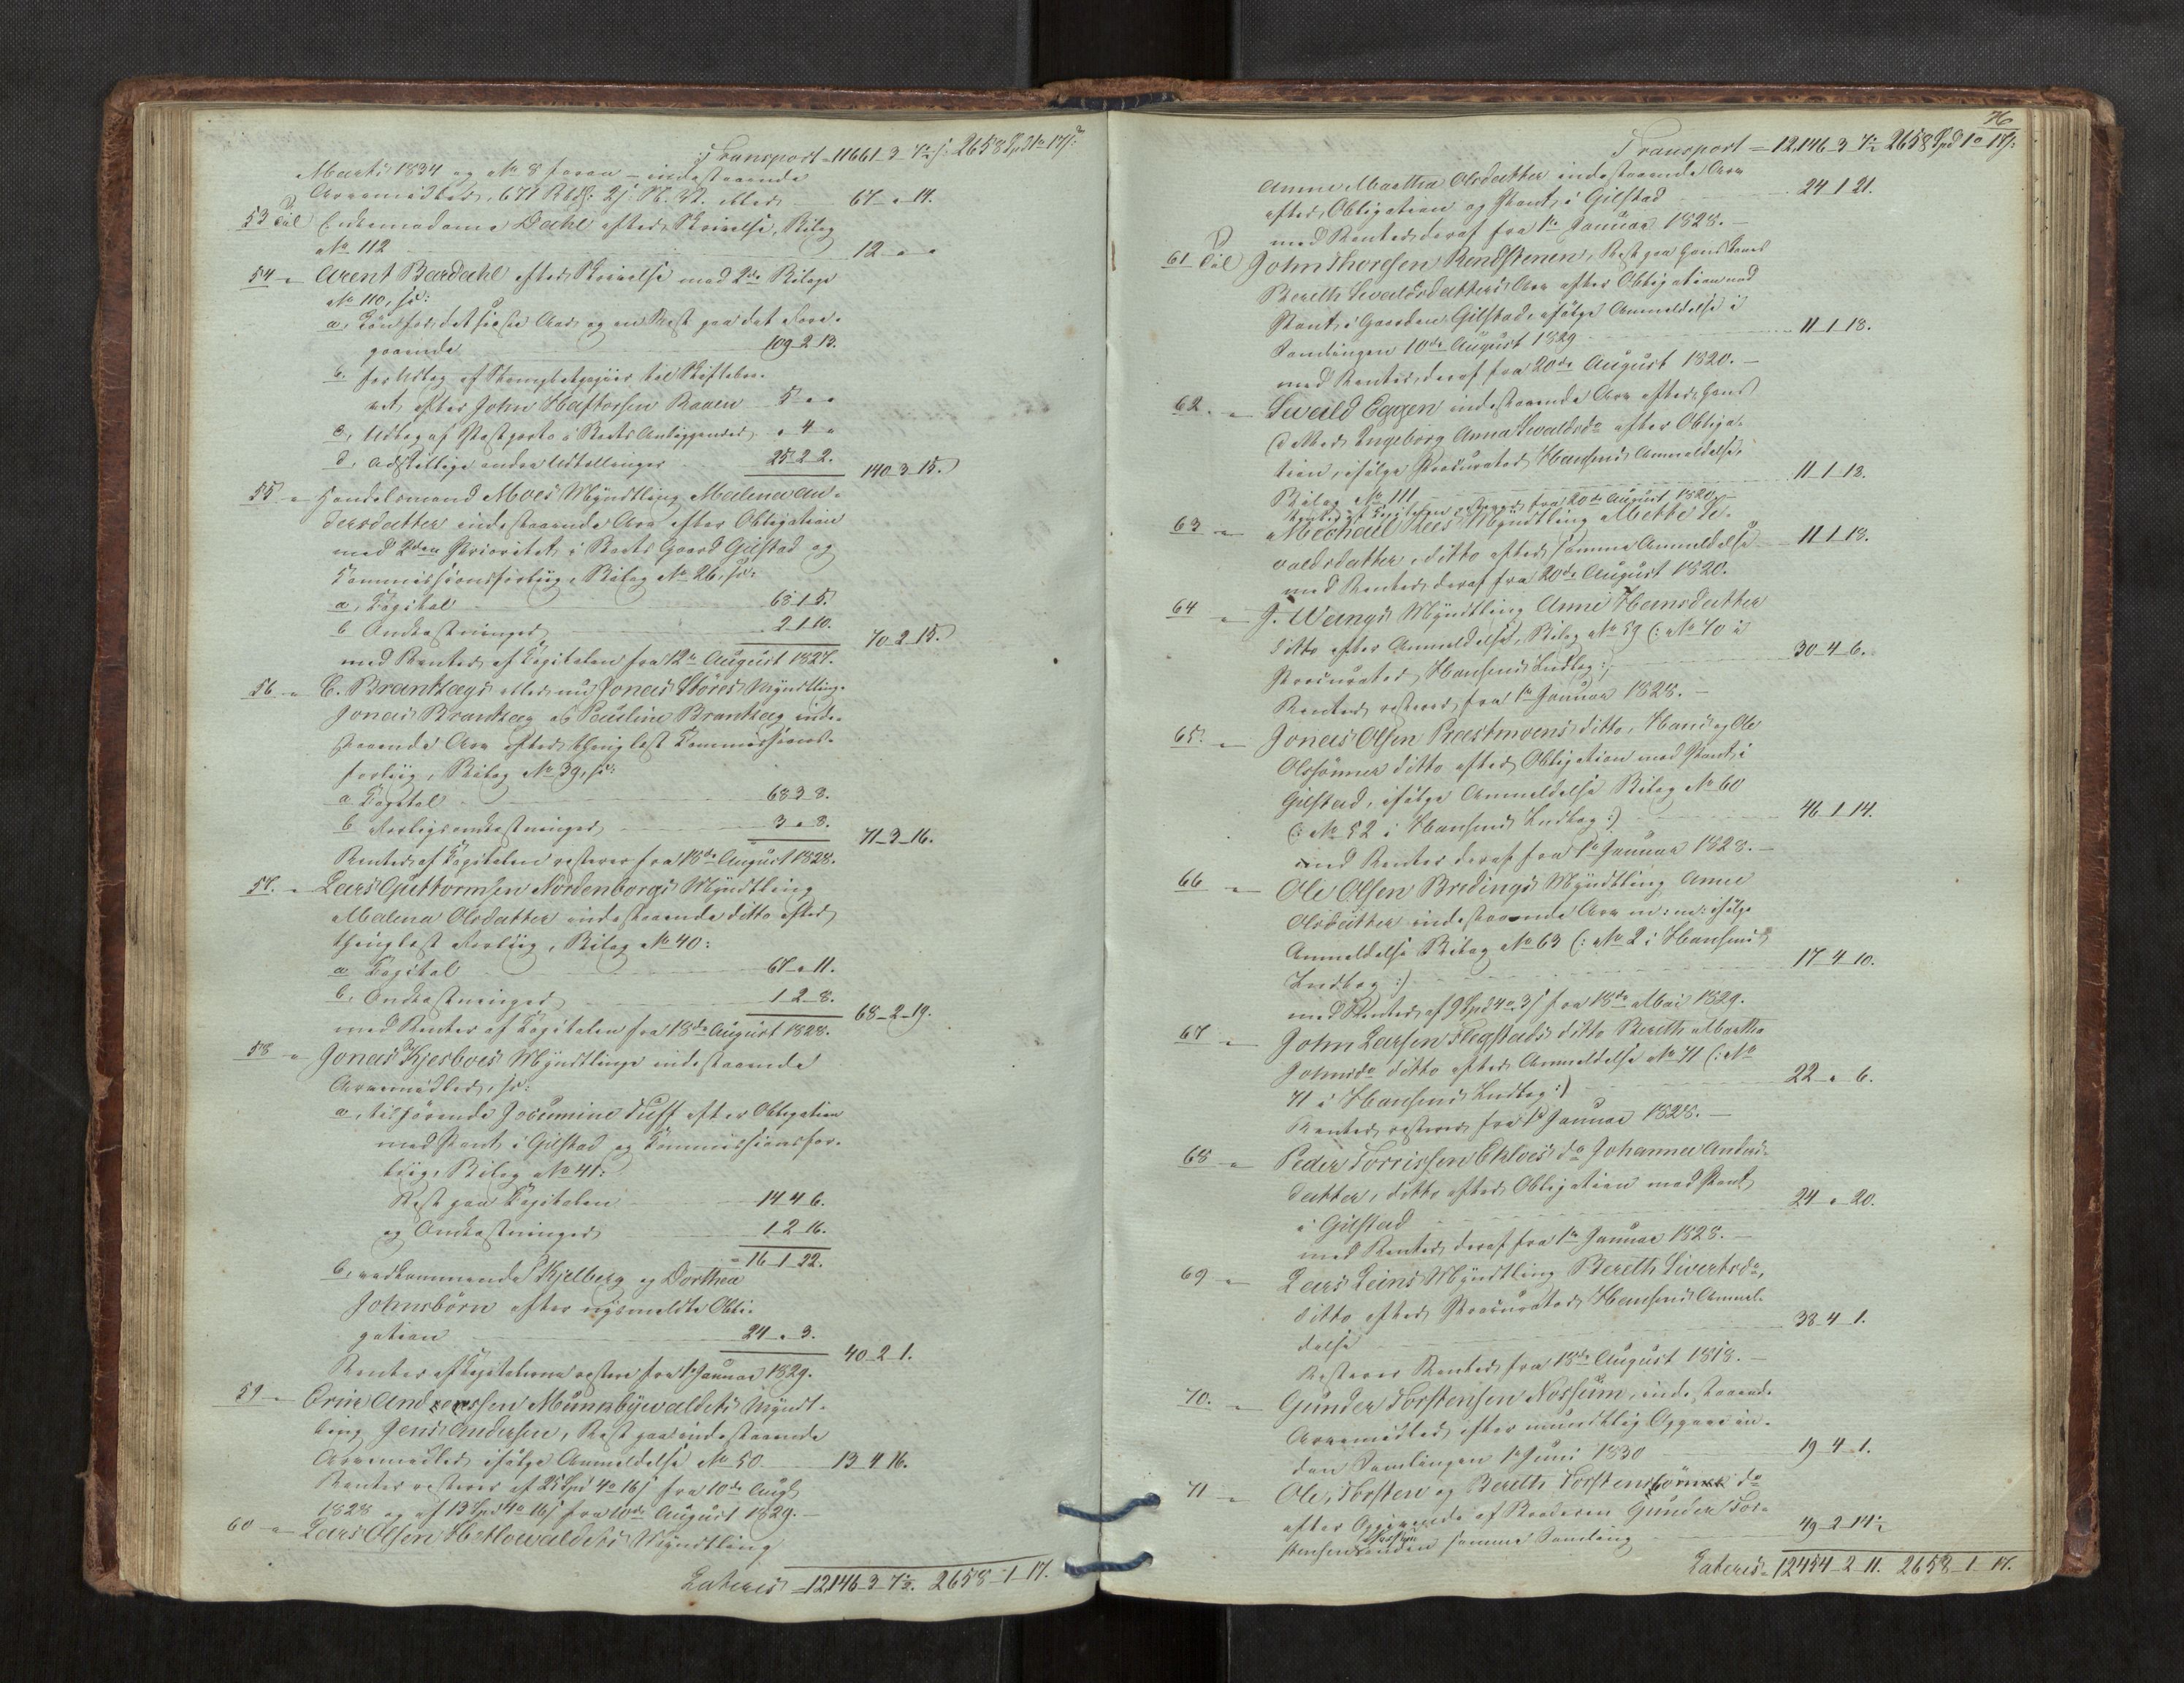 Transport = 11661 3 7½ s: 2658 Spd 1 o 17 s:
Marts 1834 og No 8 foran – indestaaende
Arvemidler, 671 Rbd: 2 s: N. V. eller 67 " 11.
53 Til Enkemadame Dahl efter Skrivelse, Bilag
No 112 12 " "
54 " Arent Bardahl efter Skrivelse med 2de Bilage
No 110, so:
a, Løn for det sidste Aar og en Rest paa det fore-
gaaende 109 2 13.
b. for Udlæg af Stemplet papiir til Skiftebre-
vet efter John Haftorsen Raaen 5 " "
c, Udlæg af Postporto i Boets Anliggender " 4 "
d, adskillige andre Udtællinger 25 2 2. 140 3 15.
55 " Handelsmand Moes Myndtling Malena An-
dersdatter indestaaende Arv efter Obligation
med 2den Prioritet i Boets Gaard Gilstad og
Kommissionsforliig, Bilag No 26, so:
a, Kapital 68 1 5.
b Omkostninger 2 1 10. 70 2 15.
med Renter af Kapitalen fra 12te August 1827.
56 " C. Brantzags eller nu Jonas Støres Myndtling-
Jonas Brantzag og Pauline Brantzag inde-
staaende Arv efter thinglæst Kommissions-
forliig, Bilag No 39, so:
a Kapital 68 3 8.
b Forligsomkostninger 3 " 8. 71 3 16.
Renter af Kapitalen resterer fra 18de August 1828.
57. " Lars Guttormsen Nordenborgs Myndtling
Malena Olsdatter indestaaende ditto efter
thinglæst Forliig, Bilag No 40:
a Kapital 67 " 11.
b, Omkostninger 1 2 8. 68 2 19.
med Renter af Kapitalen fra 18de August 1828.
58 " Jonas Kjesboes Myndtlinge indestaaende
Arvemidler, so:
a, tilhørende Jocumine Tuff efter Obligation
med Pant i Gilstad og Kommissionsfor-
liig, Bilag No 41:
Rest paa Kapitalen 14 4 6.
og Omkostninger 1 2 16.
= 16 1 22.
b, vedkommende Kjelberg og Dorthea
Johnsbørn efter nysmeldte Obli-
gation 24 " 3. 40 2 1.
Renter af Kapitalerne restere fra 1 Januar 1829.
59 " Orm Anderssen Mumbyevaldets Myndt-
ling Jens Andersen, Rest paa indestaaende
Arvemidler ifølge Anmeldelse No 50 13 4 16.
Renter resterer af 25 Spd 4 o 16 s fra 10de Augst
1828 og af 13 Spd 4 o 16 s fra 10de August 1829. –
60 " Lars Olsen Hallevaldets Myndtling
Lateris = 12146 3 7½. 2658 1 17.
76
Transport = 12,146 3 7½ 2658 Spd 1 o 17 s:
Anne Martha Olsdatter indestaaende Arv
efter, Obligation og Pant, i Gilstad 24 1 21.
med Renter deraf fra 1ste Januar 1828. –
61 Til John Thoresen Rendstenen, Rest paa hans Kones
Bereth Sivaldsdatters Arv efter Obligation med
Pant i Gaarden Gilstad, ifølge Anmeldelse i
Samlingen 10de August 1829 11 1 18.
med Renter deraf fra 20de August 1820. –
62. " Siwald Eggen indestaaende Arv efter hans
Datter Ingeborg Anna Sivaldsdr efter Obliga-
tion, ifølge Procurator Hansens Anmeldelse,
Bilag No 111 11 1 18.
Renter af Kapitalen resterer fra 20de August 1820. –
63 " Mechael Rees Myndtling Mette Si-
valdsdatter, ditto efter samme Anmeldelse 11 1 18.
med Renter deraf fra 20de August 1820.
64 " J. Wangs Myndtling Anne Hansdatter
ditto efter Anmeldelse, Bilag No 59 (: No 70 i
Procurator Hansens Indlæg :) 30 4 6.
Renter resterer fra 1ste Januar 1828. –
65. " Jonas Olsen Præstmoens ditto, Hans og Ole
Olssønner ditto efter Obligation med Pant i
Gilstad, ifølge Anmeldelse Bilag No 60
(: No 52 i Hansens Indlæg :) 46 1 14.
med Renter deraf fra 1ste Januar 1828. –
66 " Ole Olsen Bredings Myndtling Anne
Olsdatter indestaaende Arv m: m: ifølge
Anmeldelse Bilag No 63 (: No 2 i Hansens
Indlæg :) 17 4 10.
med Renter af 9 Spd 4 o 3 s fra 18de Mai 1829.
67 " John Larsen Kregstads ditto Bereth Martha
Johnsdr ditto efter Anmeldelse No 71 (: No
71 i Hansens Indlæg :) 22 " 6.
Renter resterer fra 1ste Januar 1828. –
68 " Peder Torrissen Ekloes do Johanna Anders-
datter, ditto efter Obligation med Pant
i Gilstad 24 " 20.
med Renter deraf fra 1ste Januar 1828. –
69 " Lars Leins Myndtling Bereth Sivertsdr,
ditto efter Procurator Hansens Anmel-
delse 38 4 1.
Resterer Renter fra 18de August 1818. –
70. " Gunder Torstensen Nossum, indestaaende
Arvemidler efter mundtlig Opgave in
den Samlingen 1 Juni 1830 19 4 1.
71 " Ole, Torsten og Bereth Torstensbørns do
efter Opgivende af Broderen Gunder Tor-
stensen Nossum under samme Samling 49 2 14½
Lateris = 12454 2 11. 2658 1 17.